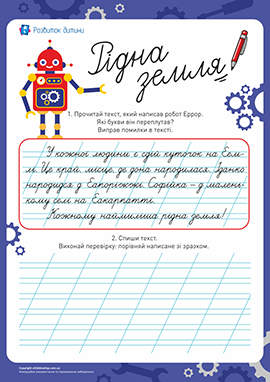 Розвиток дитини
Рідна
земля
1. Прочитай текст, який написав робот Еррор.
Які букви він переплутав?
Виправ помилки в тексті.
У кожної людини є сдій куточок на Еем-
лі. Це край, місце, де дона народилася. Іданко
народидся д Еапоріжжі. Софійка – д малень-
кому селі на Еакарпатті.
Кожному наймиліша рідна земля!
2. Спиши текст.
Виконай перевірку: порівняй написане зі зразком.